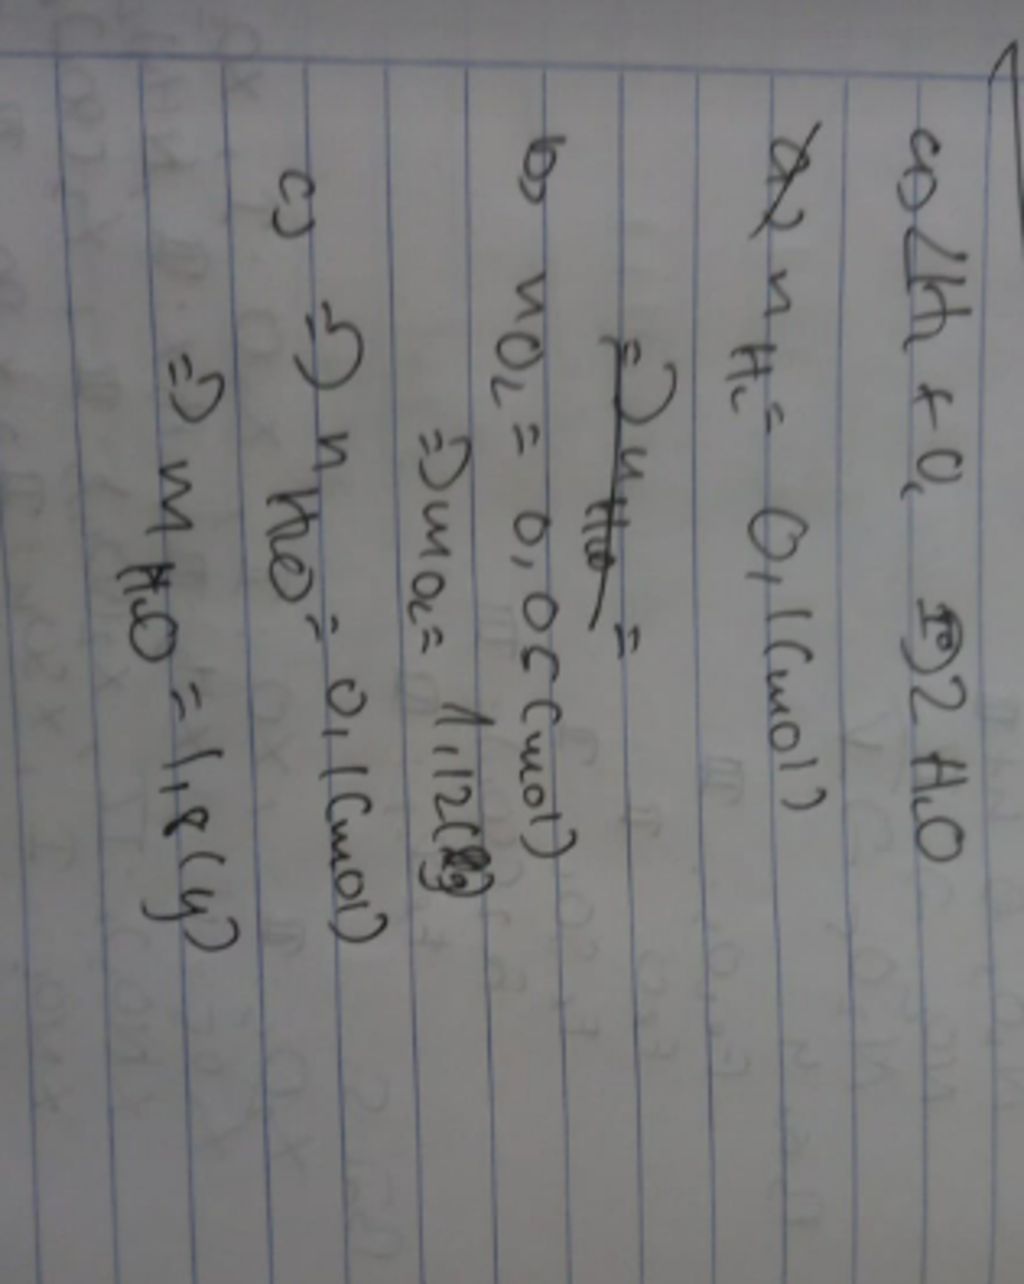 a) 2H₂ + O₂ 2H₂O
a) n H₂ = 0,1(mol)
=) n H₂O =
b) nO₂ = 0,05(mol)
=) mO₂ = 1,12(g)
c) =) n H₂O = 0,1(mol)
=) m H₂O = 1,8(g)